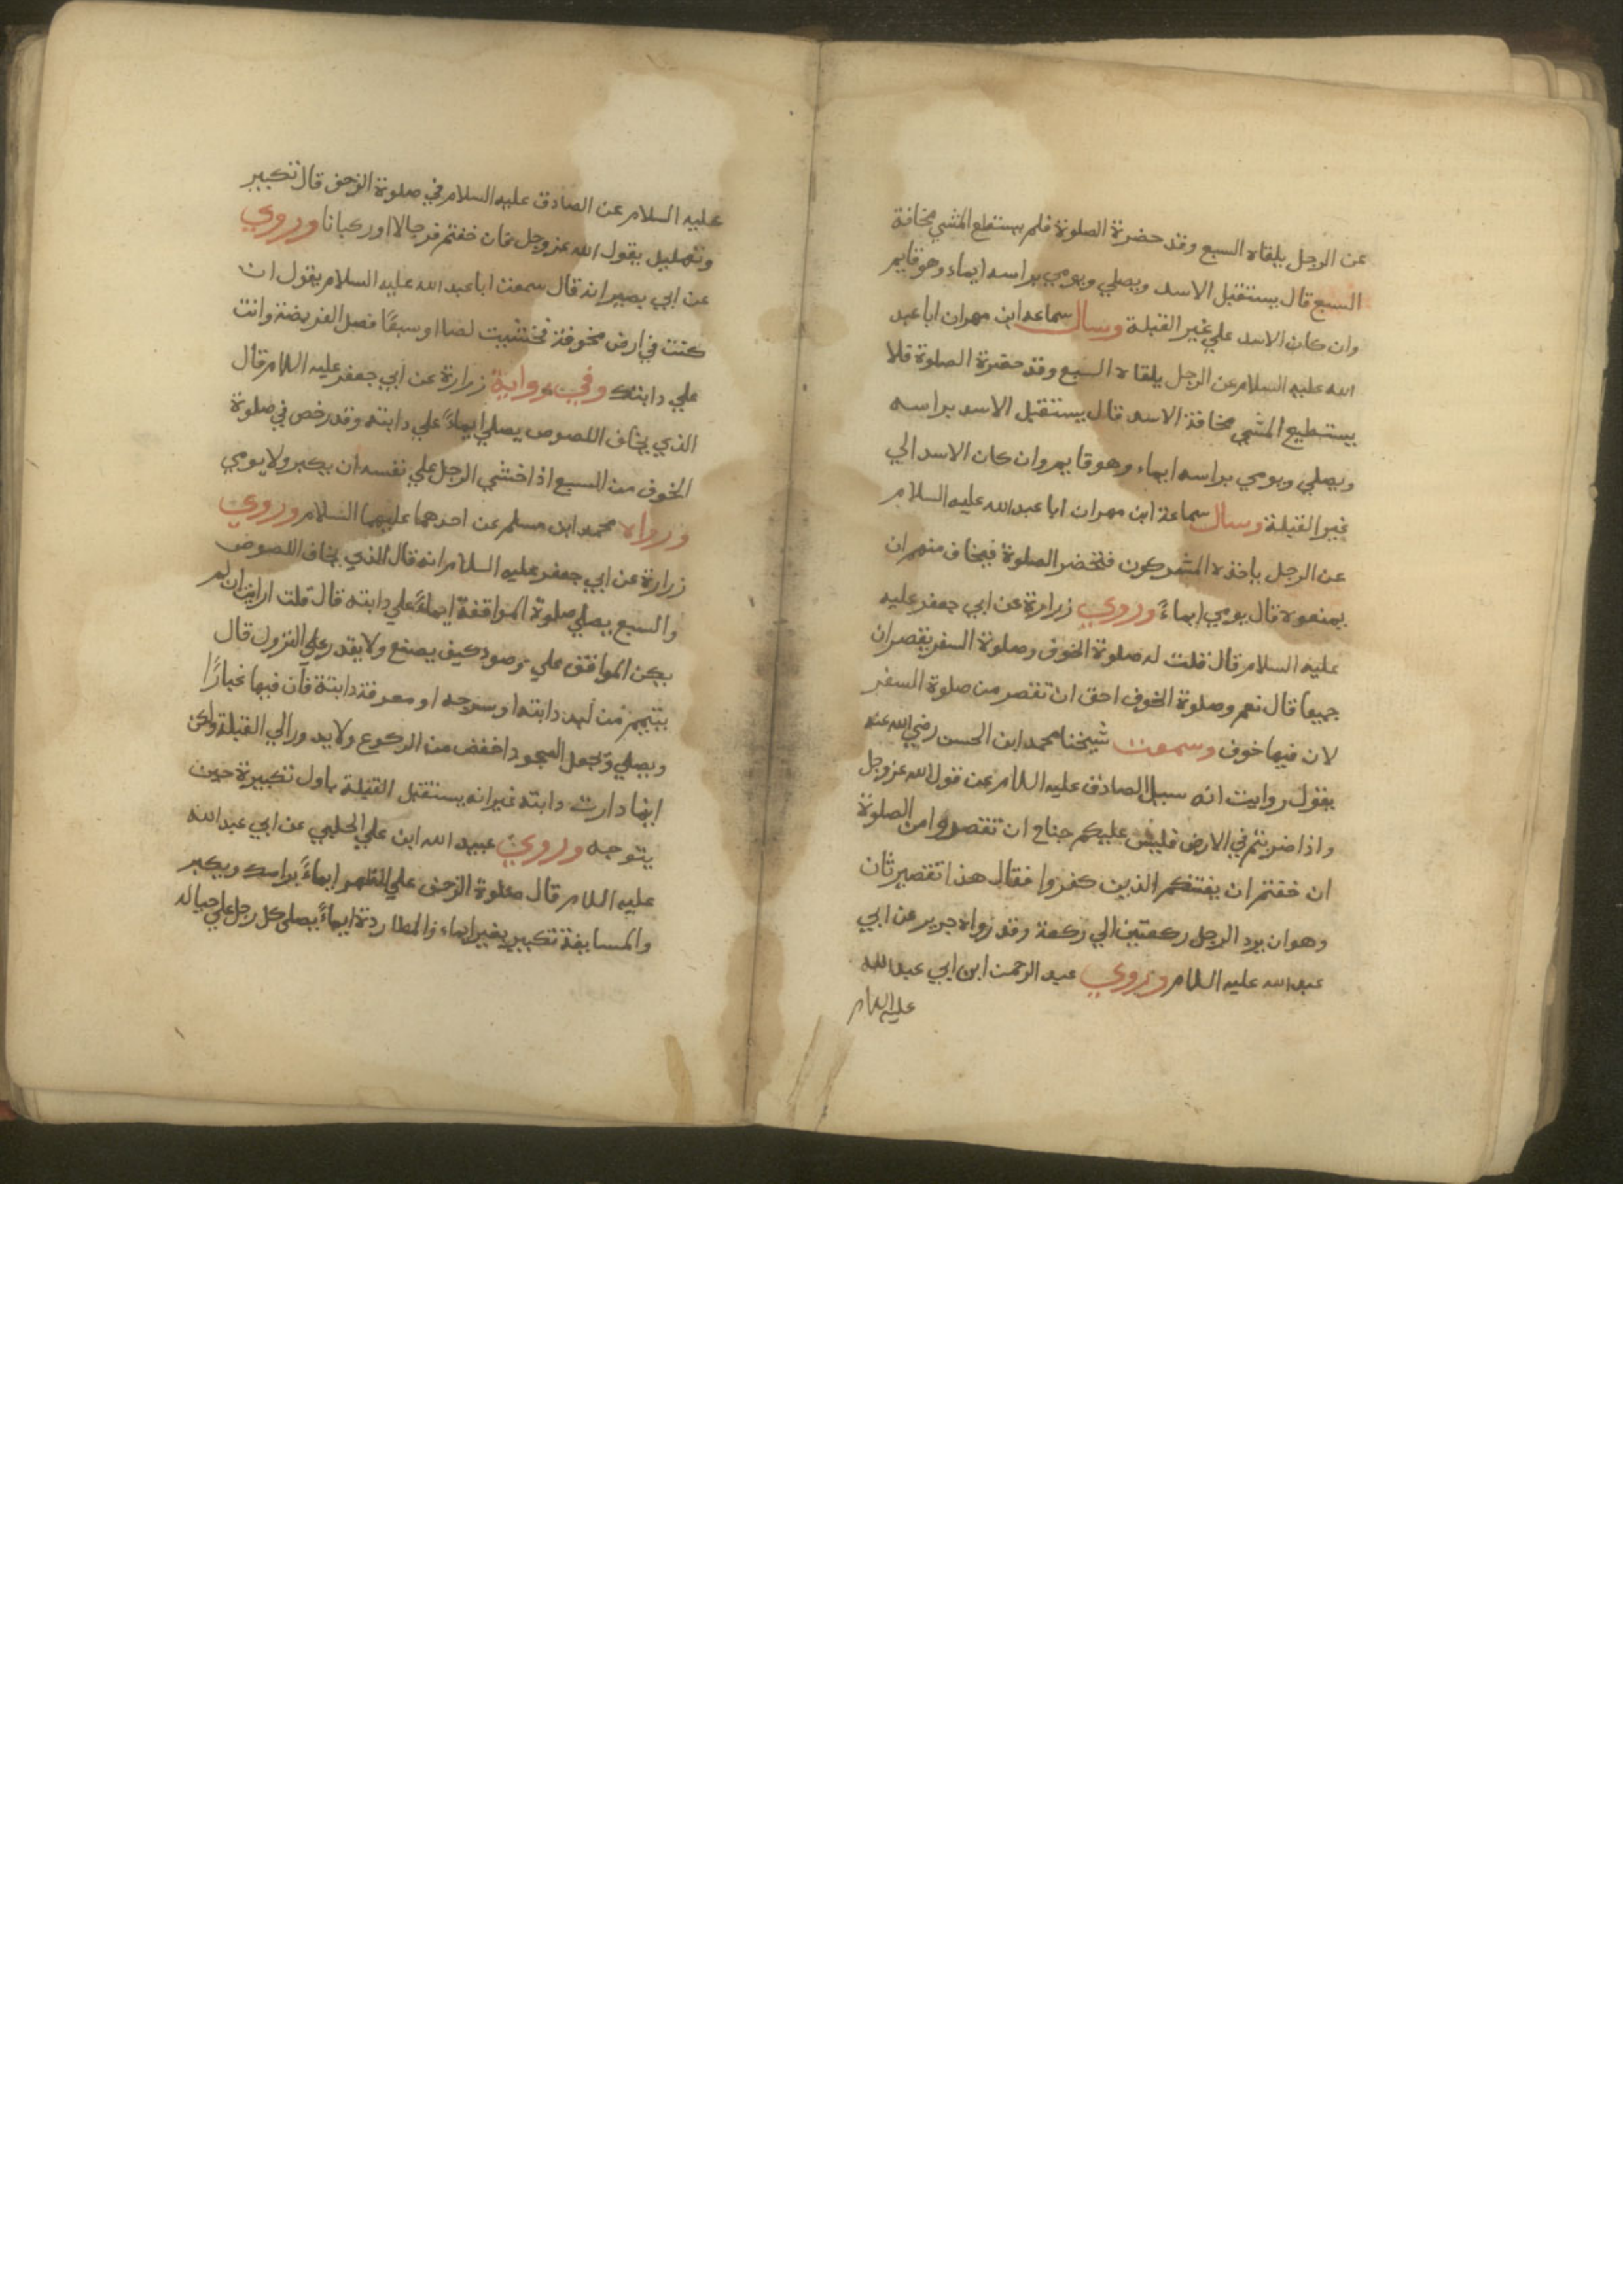 عن الرجل يلقاه السبع وقد حضرة الصلوة فلم يستطع المشي مخافة
السبع قال يستقبل الاسد ويصلي ويومي براسه ايماء وهو قايم
وان كان الاسد علي غير القبلة وسال سماعه ابن مهران ابا عبد
الله عليه السلام عن الرجل يلقاه السبع وقد حضرة الصلوة فلا
يستطيع المشي مخافة الاسد قال يستقبل الاسد براسه
ويصلي ويومي براسه ايماء وهو قايم وان كان الاسد الي
غير القبلة وسال سماعة ابن مهران ابا عبد الله عليه السلام
عن الرجل ياخذه المشركون فتحضر الصلوة فيخاف منهم ان
يمنعوه قال يومي ايماءً وروي زرارة عن ابي جعفر عليه
عليه السلام قال قلت له صلوة الخوف وصلوة السفر يقصران
جميعا قال نعم وصلوة الخوف احق ان تقصر من صلوة السفر
لان فيها خوف وسمعت شيخنا محمد ابن الحسن رضي الله عنه
يقول رويت انه سيل الصادق عليه السلام عن قول الله عز وجل
واذا ضربتم في الارض فليس عليكم جناح ان تقصروا من الصلوة
ان خفتم ان يفتنكم الذين كفروا فقال هذا تقصير ثان
وهو ان يرد الرجل ركعتين الي ركعة وقد رواه جرير عن ابي
عبد الله عليه السلام وروي عبد الرحمن ابن ابي عبد الله
عليه السلام
عليه السلام عن الصادق عليه السلام في صلوة الزحف قال تكبير
وتهليل يقول الله عز وجل فان خفتم فرجالا او ركبانا وروي
عن ابي بصير انه قال سمعت ابا عبد الله عليه السلام يقول ان
كنت في ارض مخوفة فخشيت لصا او سبعًا فصل الفريضة وانت
علي دابتك وفي رواية زرارة عن ابي جعفر عليه السلام قال
الذي يخاف اللصوص يصلي ايماءً علي دابته وقد رخص في صلوة
الخوف من السبع اذا خشي الرجل علي نفسه ان يكبر ولا يومي
ورواه محمد ابن مسلم عن احدهما عليهما السلام وروي
زرارة عن ابي جعفر عليه السلام انه قال الذي يخاف اللصوص
والسبع يصلي صلوة المواقفة ايماءً علي دابته قال قلت ارايت ان لم
يكن المواقف علي وضود كيف يصنع ولا يقدر علي النزول قال
يتيمم من لبد دابته او سرجه او معرفة دابتة فان فيها غبارًا
ويصلي ويجعل السجود اخفض من الركوع ولا يدور الي القبلة ولكن
اينما دارت دابته غير انه يستقبل القبلة باول تكبيرة حين
يتوجه وروي عبيد الله ابن علي الحلبي عن ابي عبد الله
عليه السلام قال صلوة الزحف علي الظهر ايماءً براسك ويكبر
والمسايفة تكبير بغير ايماء والمطاردة ايماءً يصلي كل رجل علي حياله